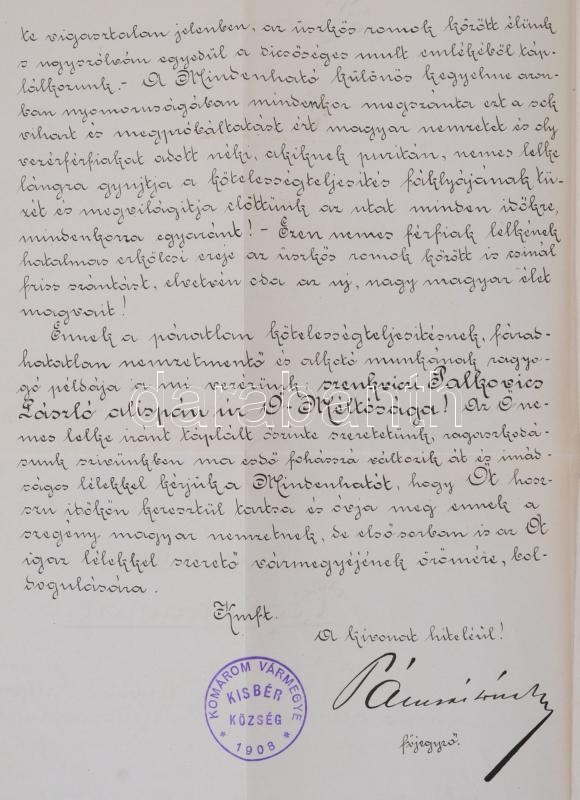 te vigasztalan jelenben, az üszkös romok között élünk
s ugyszólván egyedül a dicsőséges mult emlékéből táp-
lálkozunk.- A Mindenható különös kegyelme azon-
ban nyomoruságában mindenkor megszánta ezt a sok
vihart és megpróbáltatást ért magyar nemzetet és oly
vezérférfiakat adott néki, akiknek puritán, nemes lelke
lángra gyujtja a kötelességteljesités fáklyájának tü-
zét és megvilágitja előttünk az utat minden időkre,
mindenkorra egyaránt! - Ezen nemes férfiak lelkének
hatalmas erkölcsi ereje az üszkös romok között is csinál
friss szántást, elvetvén oda az uj, nagy magyar élet
magvait!
Ennek a páratlan kötelességteljesitésnek, fárad-
hatatlan nemzetmentő és alkotó munkának ragyo-
gó példája a mi vezérünk, szenkviczi Palkovics
László alispán ur Ő-Méltósága! Az Ő ne-
mes lelke iránt táplált őszinte szeretetünk, ragaszkodá-
sunk szivünkben ma esdő fohásszá változik át és imád-
ságos lélekkel kérjük a Mindenhatót, hogy Őt hosz-
szu időkön keresztül tartsa és óvja meg ennek a
szegény magyar nemzetnek, de első sorban is az Őt
igaz lélekkel szerető vármegyéjének örömére, bol-
dogulására.
Kmft.
A kivonat hiteléül!
főjegyző.
KOMÁROM VÁRMEGYE
KISBÉR
KÖZSÉG
* 1908 *
darabanth